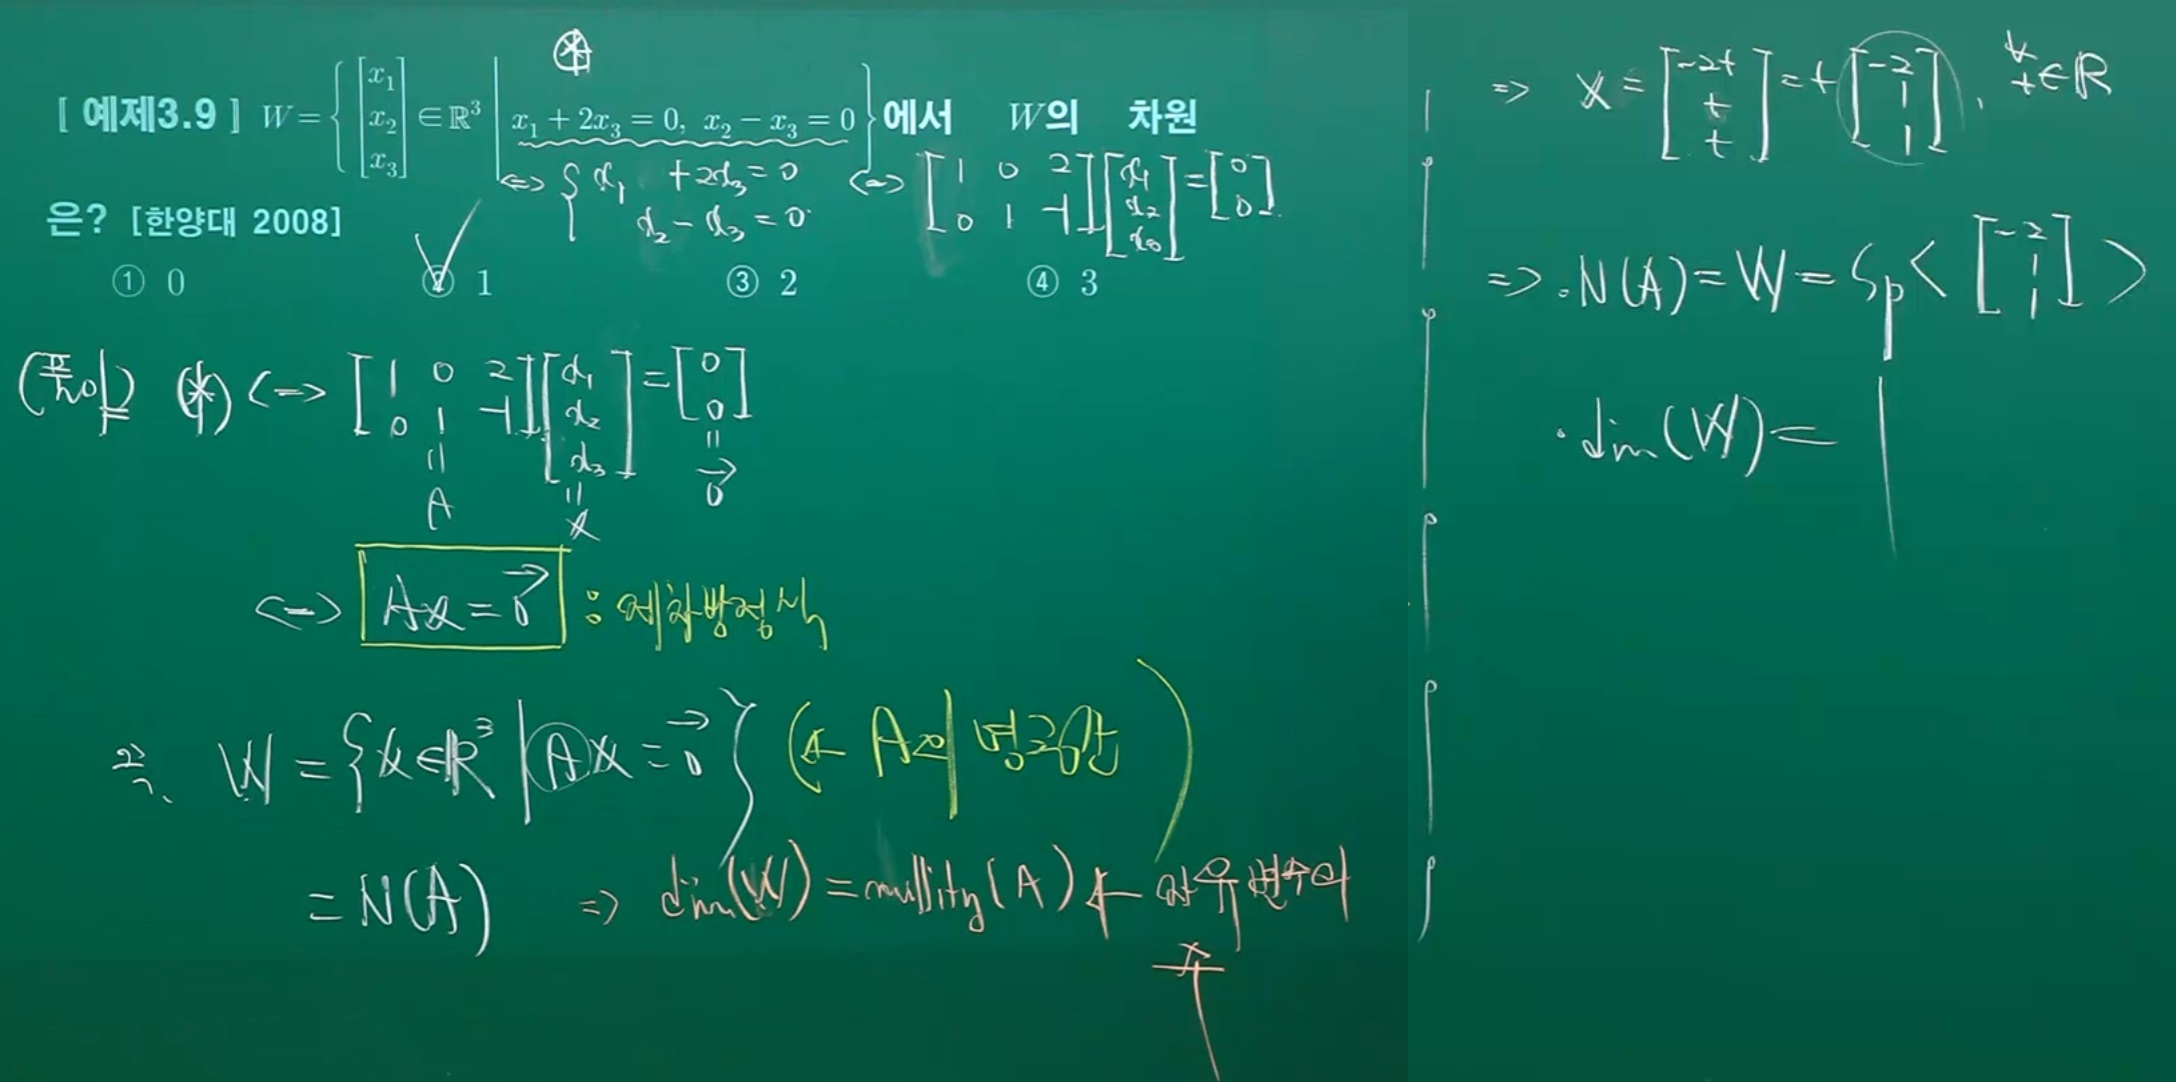 ⊛
[ 예제3.9 ] W = { [x₁ x₂ x₃] ∈ ℝ³ | x₁ + 2x₃ = 0, x₂ − x₃ = 0 } 에서 W의 차원
<=> { x₁ + 2x₃ = 0
x₂ − x₃ = 0
<=> [1 0 2; 0 1 −1] [x₁ x₂ x₃] = [0 0]
은? [한양대 2008]
① 0 ② 1 ③ 2 ④ 3
(풀이) (*) <=> [1 0 2; 0 1 −1] [x₁ x₂ x₃] = [0 0]
= A = x = 0⃗
<=> Ax = 0⃗ : 제차방정식
즉, W = { x ∈ ℝ³ | Ax = 0⃗ } (← A의 영공간)
= N(A) => dim(W) = nullity(A) ← 자유변수의
수
=> x = [−2t t t] = t [−2 1 1], ∀t ∈ ℝ
=> · N(A) = W = Sp < [−2 1 1] >
· dim(W) = 1